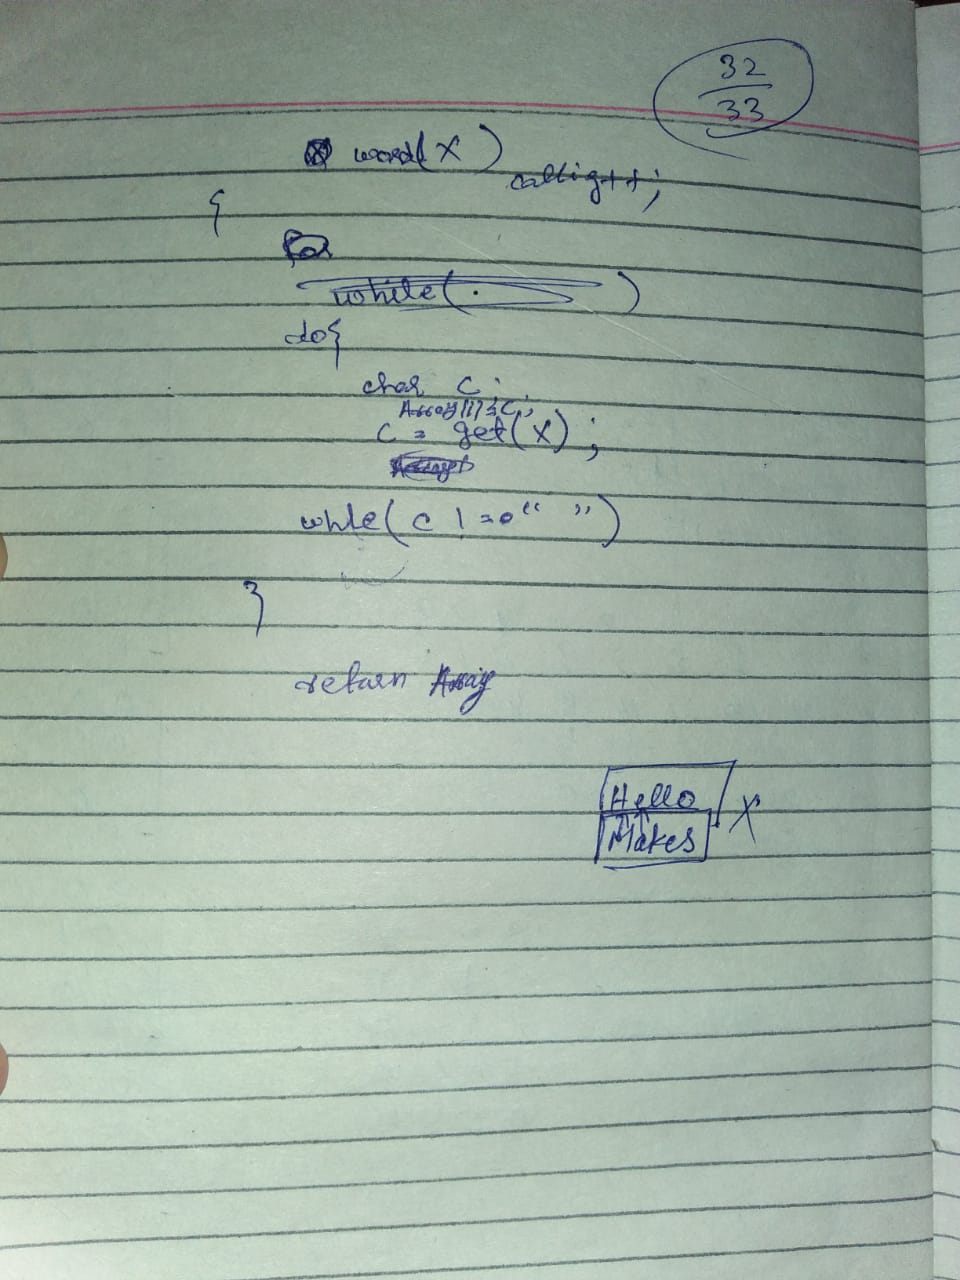 32
33
word(X)
{
do{
char c;
Array[i]=c;
c = get(X);
while(c != " ")
}
return Array
Hello
Makes
X